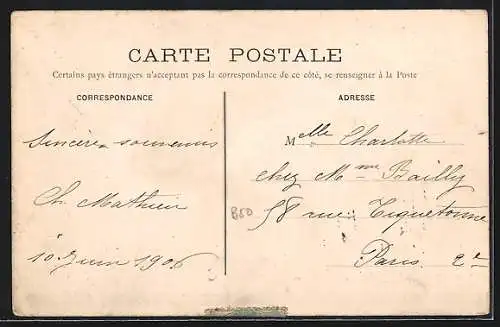 CARTE POSTALE
Certains pays étrangers n'acceptant pas la correspondance de ce côté, se renseigner à la Poste
CORRESPONDANCE
ADRESSE
Sincères souvenirs
Ch. Mathieu
10 Juin 1906
Melle Charlotte
chez Mme Bailly
58 rue Tiquetonne
Paris 2e
B50